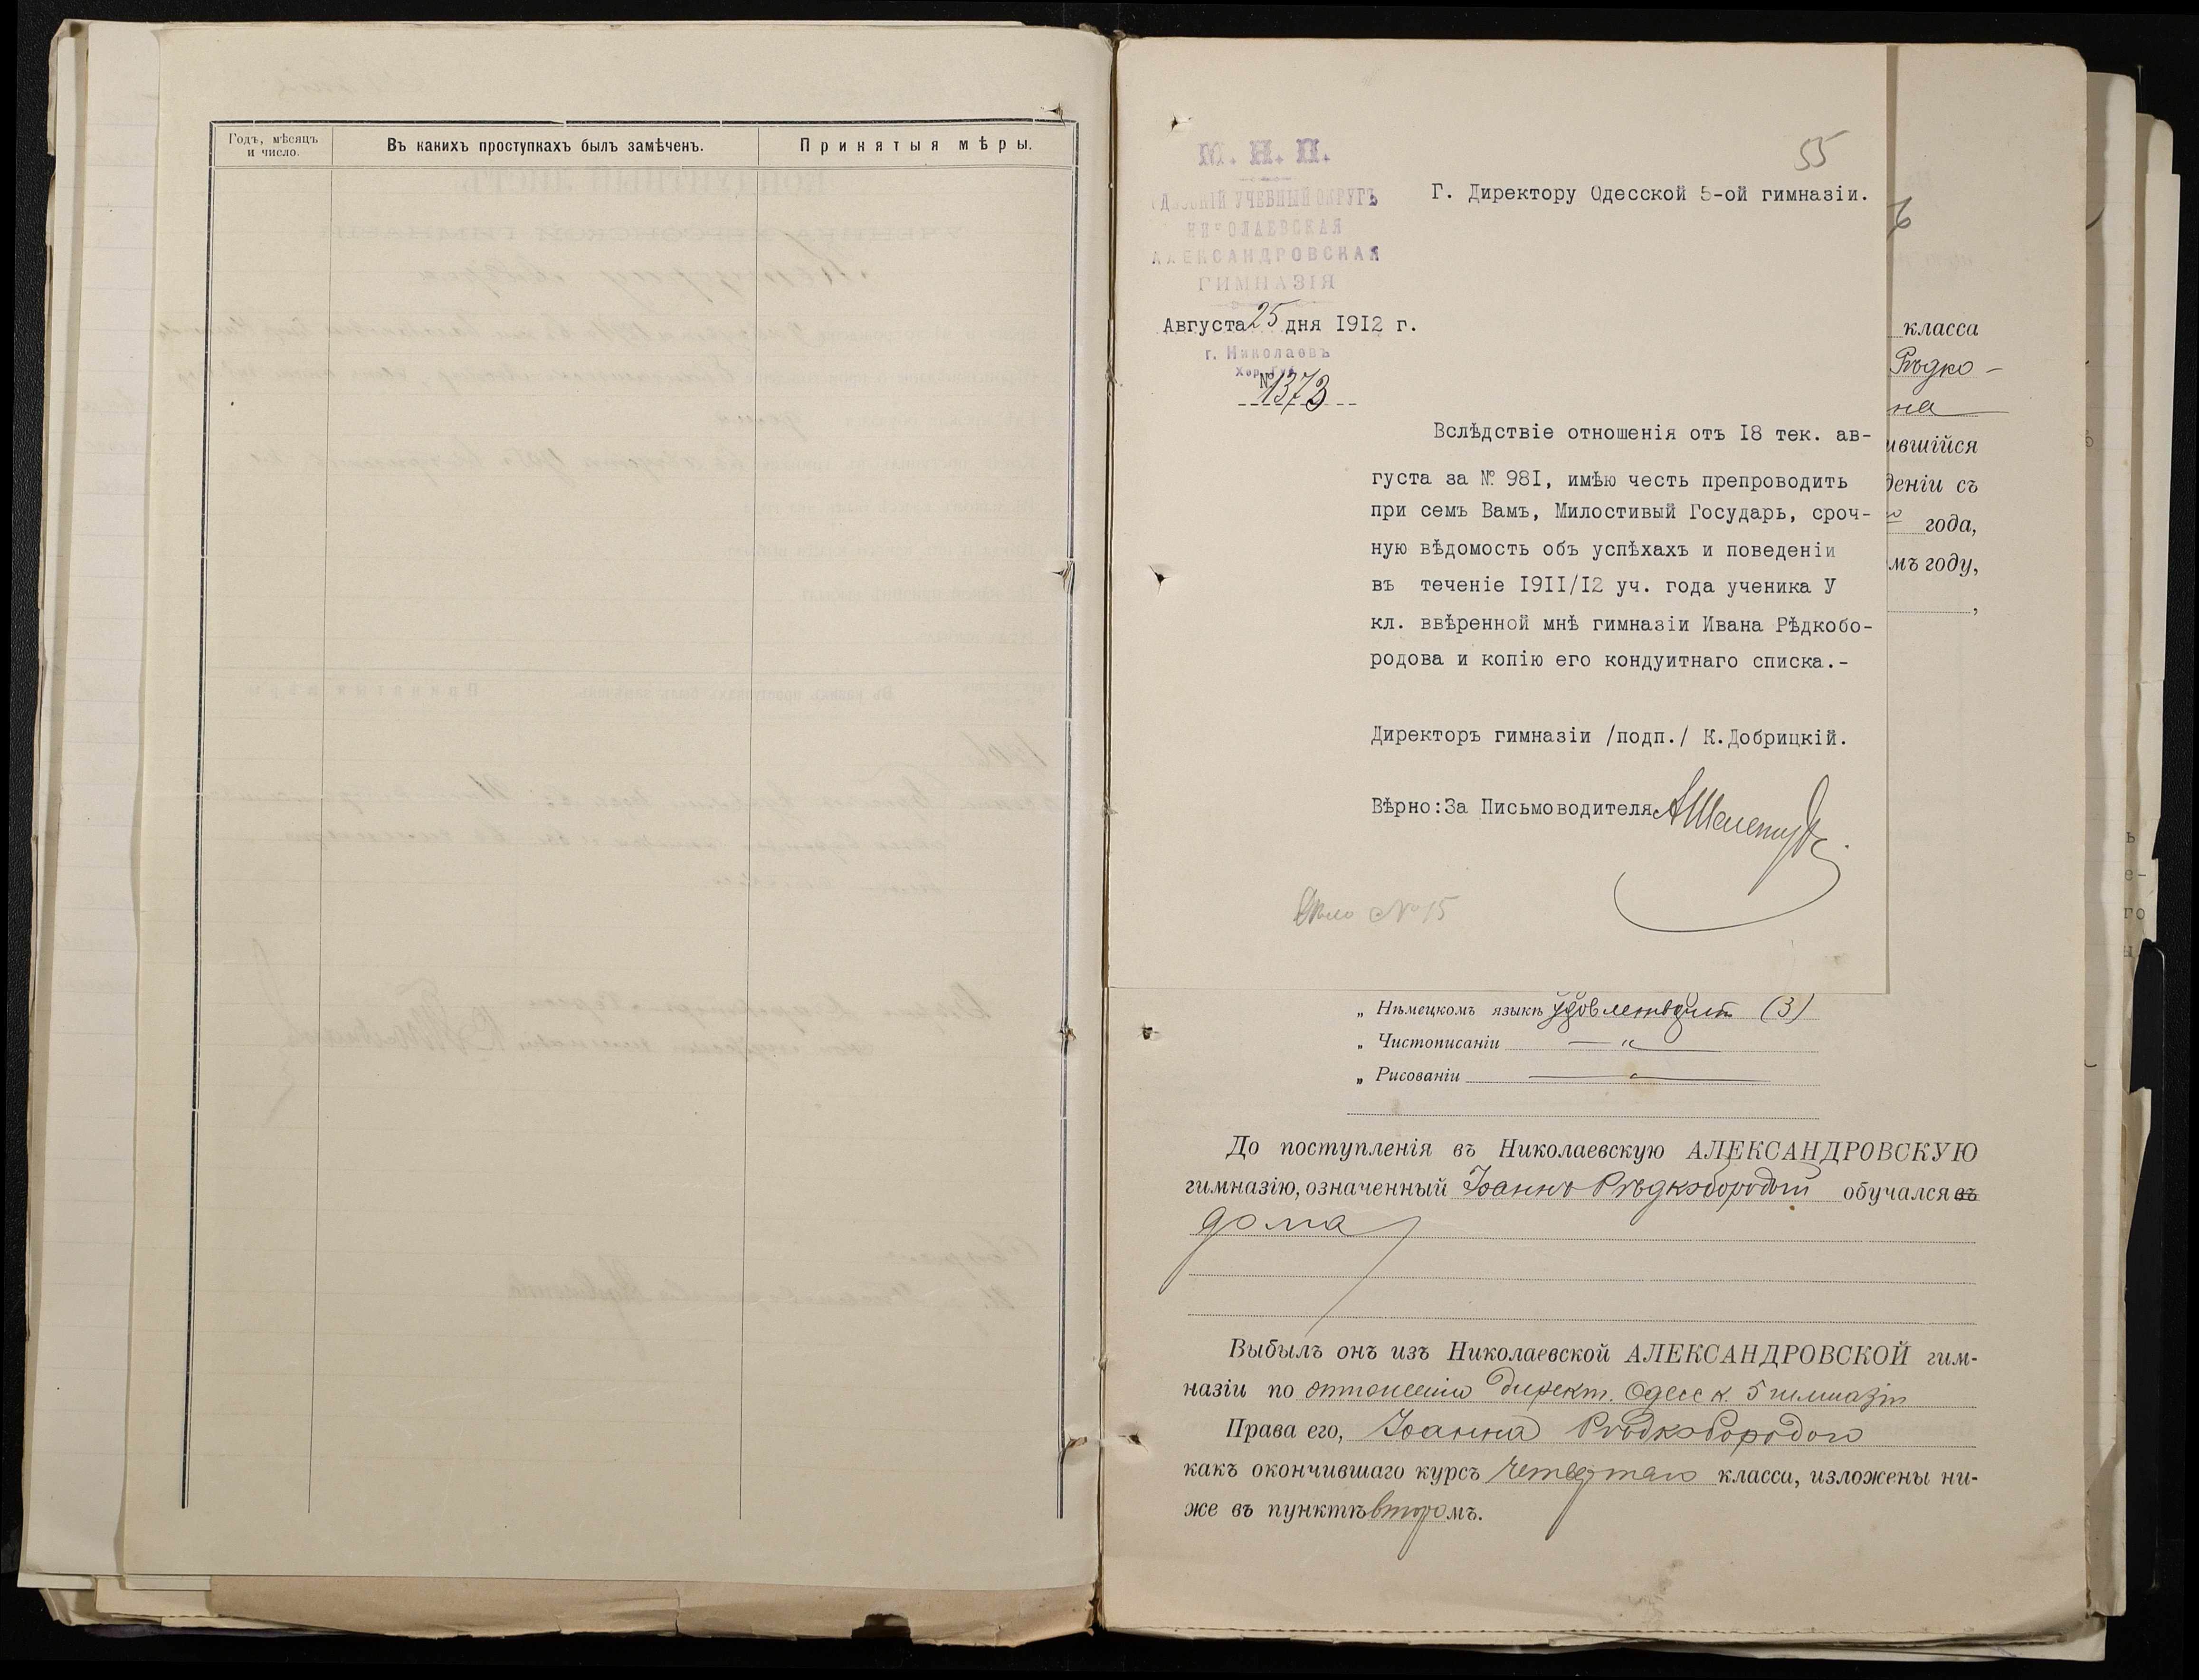 Годъ, мѣсяцъ
и число.
Въ какихъ проступкахъ былъ замѣченъ.
Принятыя мѣры.
55
М. Н. П.
ОДЕССКІЙ УЧЕБНЫЙ ОКРУГЪ
НИКОЛАЕВСКАЯ
АЛЕКСАНДРОВСКАЯ
ГИМНАЗІЯ
Августа 25 дня 1912 г.
г. Николаевъ
Хер. Губ.
№ 1373
Г. Директору Одесской 5-ой гимназіи.
Вслѣдствіе отношенія отъ 18 тек. ав-
густа за № 981, имѣю честь препроводить
при семъ Вамъ, Милостивый Государь, сроч-
ную вѣдомость объ успѣхахъ и поведеніи
въ теченіе 1911/12 уч. года ученика У
кл. ввѣренной мнѣ гимназіи Ивана Рѣдкобо-
родова и копію его кондуитнаго списка.-
Директоръ гимназіи /подп./ К.Добрицкій.
Вѣрно:За Письмоводителя
Дѣло № 15
класса
Рѣдко-
на
ившійся
деніи съ
года,
мъ году,
„ Нѣмецкомъ языкѣ удовлетворит (3)
„ Чистописаніи — " —
„ Рисованіи — " —
До поступленія въ Николаевскую АЛЕКСАНДРОВСКУЮ
гимназію, означенный Іоаннъ Рѣдкобородый обучался въ
дома
Выбылъ онъ изъ Николаевской АЛЕКСАНДРОВСКОЙ гим-
назіи по отношенію директ. Одесск. 5 гимназіи
Права его, Іоанна Рѣдкобородого
какъ окончившаго курсъ четвертаго класса, изложены ни-
же въ пунктѣ второмъ.